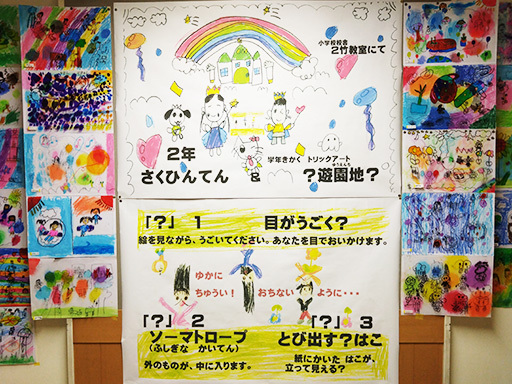 小学校校舎
2竹教室にて
2年
さくひんてん & 学年きかく トリックアート ?遊園地?
ゆうえんち
「?」 1 目がうごく?
絵を見ながら、うごいてください。あなたを目でおいかけます。
ゆかに
ちゅうい! おちない ように・・・
「?」 2 「?」 3
ソーマトロープ とび出す?はこ
(ふしぎな かいてん)
外のものが、中に入ります。
紙にかいた はこが、
立って見える?